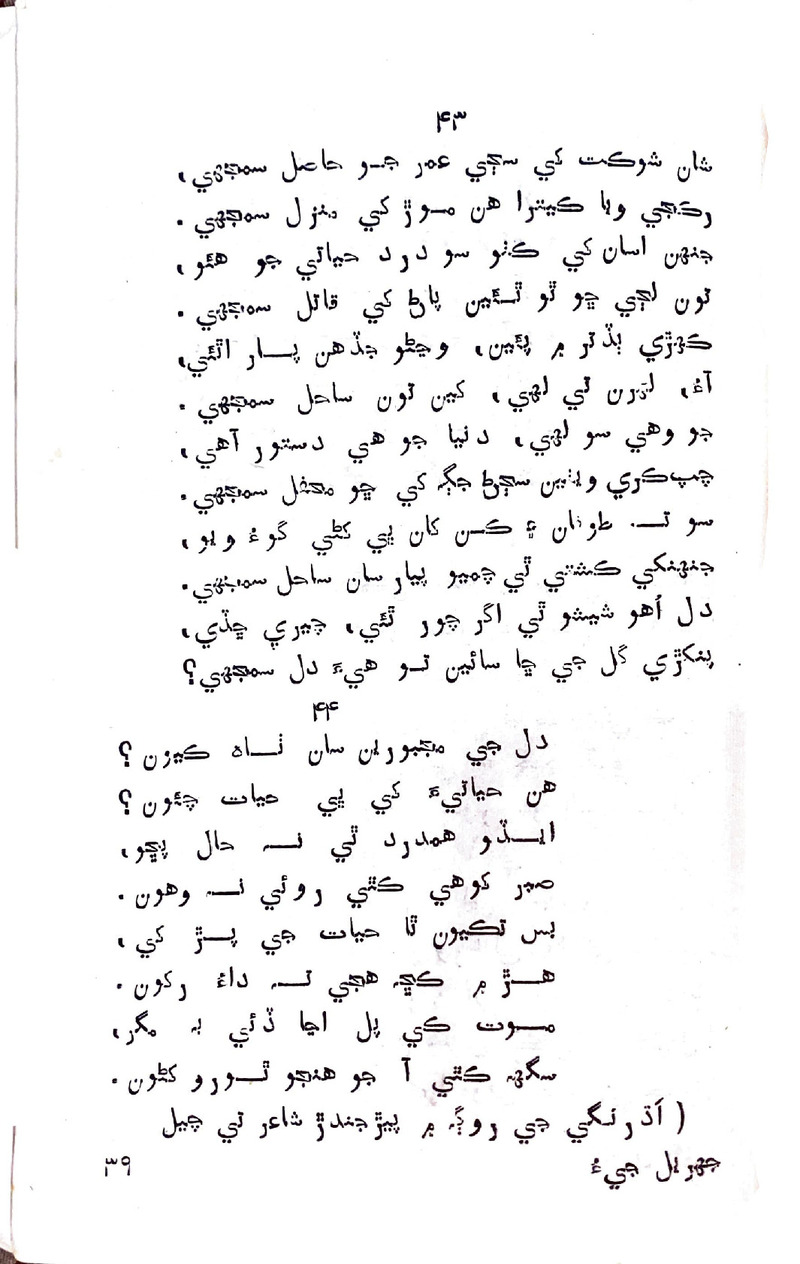 ۴۳
شان شوڪت کي سڄي عمر جو حاصل سمجهي،
رڪجي ويا ڪيترا هن موڙ کي منزل سمجهي.
جنهن اسان کي ڪٺو سو درد حياتي جو هئو،
تون لڄي ڇو ٿو ٿئين پاڻ کي قاتل سمجهي.
ڪهڙي ٻڏتر ۾ پئين، وڃڻو جڏهن پار اٿئي،
آءُ، لهرن تي لهي، کين تون ساحل سمجهي.
جو وهي سو لهي، دنيا جو هي دستور آهي،
چپ ڪري ويٺين سڄڻ جڳ کي ڇو محفل سمجهي.
سو تـ طوفان ۽ ڪن کان ٻي کڻي گوءُ ويو،
جنهنکي ڪشتي ٿي چميو پيار سان ساحل سمجهي.
دل اُهو شيشو ٿي اگر چور ٿئي، چيري ڇڏي،
پنکڙي گل جي ڇا سائين تو هيءَ دل سمجهي؟
۴۴
دل جي مجبورين سان ٺاهه ڪيون؟
هن حياتيءَ کي ٻي حيات چئون؟
ايڏو همدرد ٿي نـ حال پڇو،
صبر کوهي ڪٿي روئي نـ وهون.
بس تڪيون ٿا حيات جي پڙ کي،
هڙ ۾ ڪڇه هجي تـ داءُ رکون.
موت کي پل اڃا ڏئي به مگر،
سگهه ڪٿي آ جو هنجو ٿورو کڻون.
( اَڌرنگي جي روڳ ۾ پيڙجندڙ شاعر تي چيل
جهريل جيءُ
۳۹